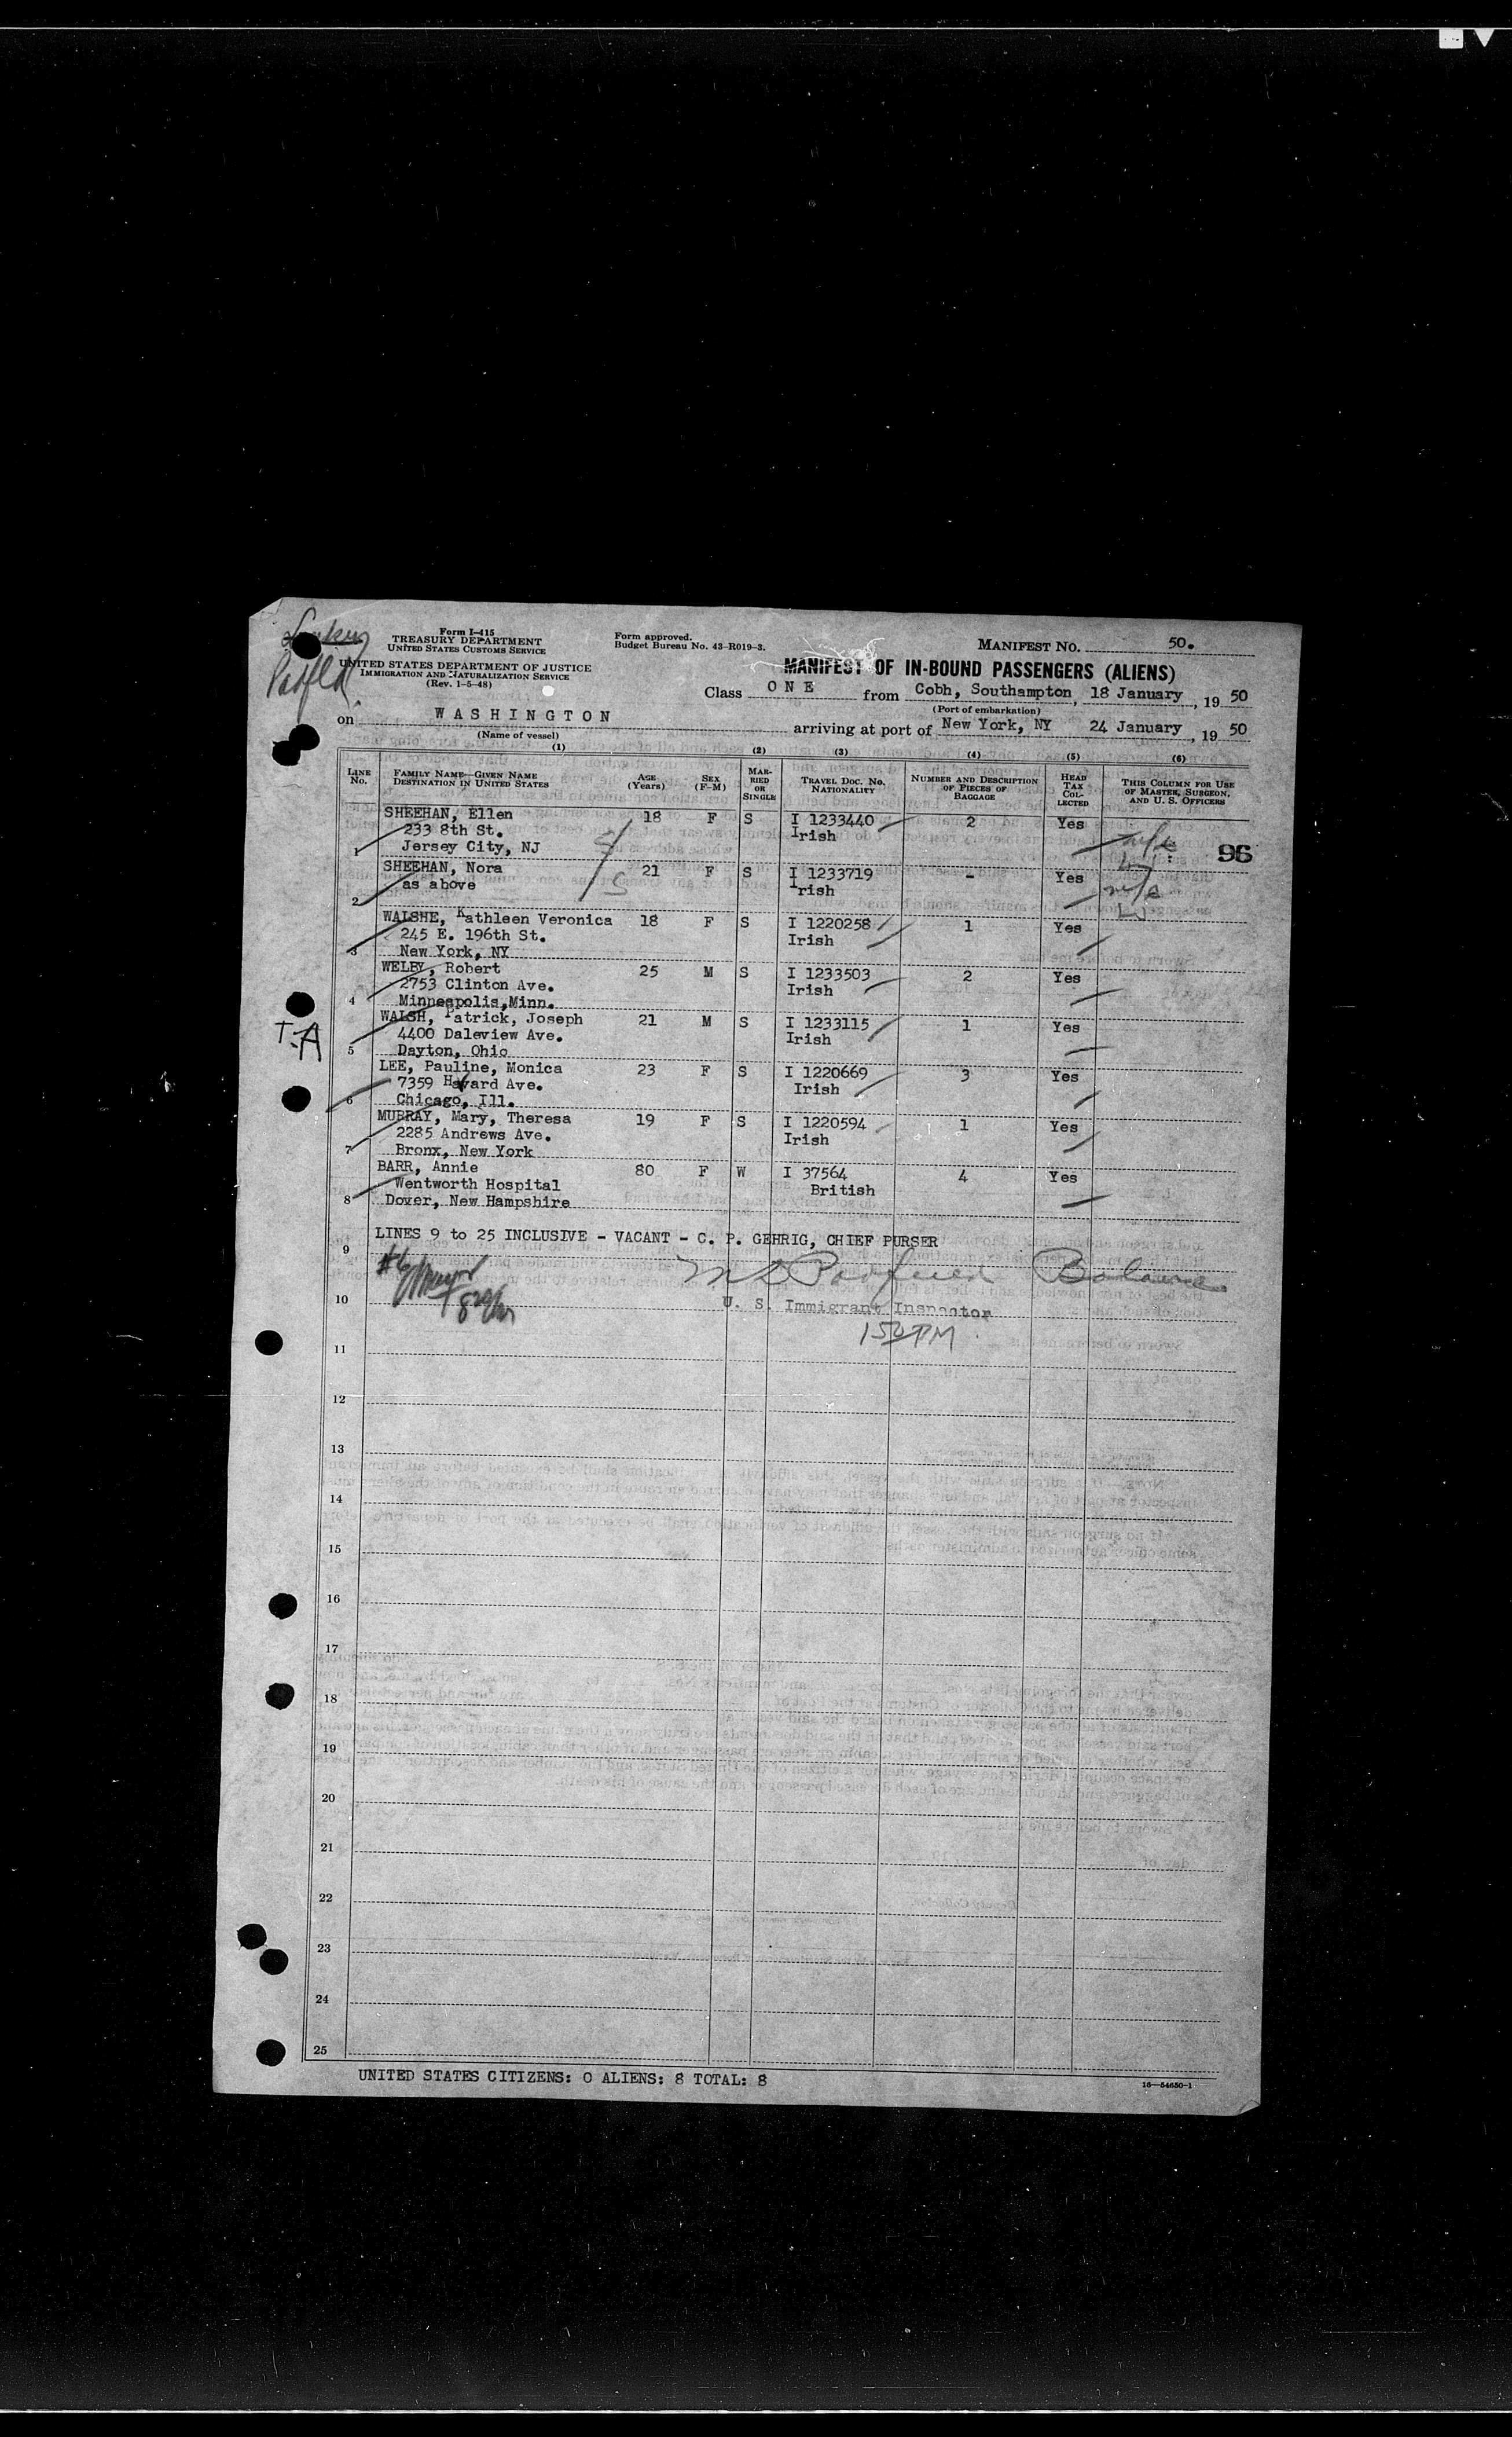 Form I-415
TREASURY DEPARTMENT
UNITED STATES CUSTOMS SERVICE
UNITED STATES DEPARTMENT OF JUSTICE
IMMIGRATION AND NATURALIZATION SERVICE
(Rev. 1-5-48)
Form approved.
Budget Bureau No. 43-R019-3.
MANIFEST NO. 50.
MANIFEST OF IN-BOUND PASSENGERS (ALIENS)
Class ONE from Cobh, Southampton, 18 January, 1950
(Port of embarkation)
on WASHINGTON arriving at port of New York, NY 24 January, 1950
(Name of vessel)
(1) (2) (3) (4) (5) (6)
LINE No. FAMILY NAME—GIVEN NAME DESTINATION IN UNITED STATES AGE (Years) SEX (F-M) MARRIED OR SINGLE TRAVEL DOC. NO. NATIONALITY NUMBER AND DESCRIPTION OF PIECES OF BAGGAGE HEAD TAX COLLECTED THIS COLUMN FOR USE OF MASTER, SURGEON, AND U. S. OFFICERS
SHEEHAN, Ellen 18 F S I 1233440 2 Yes
233 8th St. Irish
1 Jersey City, NJ 96
SHEEHAN, Nora 21 F S I 1233719 - Yes
as above Irish
2
WALSHE, Kathleen Veronica 18 F S I 1220258 1 Yes
245 E. 196th St. Irish
3 New York, NY
WELBY, Robert 25 M S I 1233503 2 Yes
2753 Clinton Ave. Irish
4 Minneapolis,Minn.
WALSH, Patrick, Joseph 21 M S I 1233115 1 Yes
T.A 4400 Daleview Ave. Irish
5 Dayton, Ohio
LEE, Pauline, Monica 23 F S I 1220669 3 Yes
7359 Havard Ave. Irish
6 Chicago, Ill.
MURRAY, Mary, Theresa 19 F S I 1220594 1 Yes
2285 Andrews Ave. Irish
7 Bronx, New York
BARR, Annie 80 F W I 37564 4 Yes
Wentworth Hospital British
8 Dover, New Hampshire
LINES 9 to 25 INCLUSIVE - VACANT - C. P. GEHRIG, CHIEF PURSER
9
#6 Balance
10 U. S. Immigrant Inspector
PM
11
12
13
14
15
16
17
18
19
20
21
22
23
24
25
UNITED STATES CITIZENS: 0 ALIENS: 8 TOTAL: 8
16—54650-1